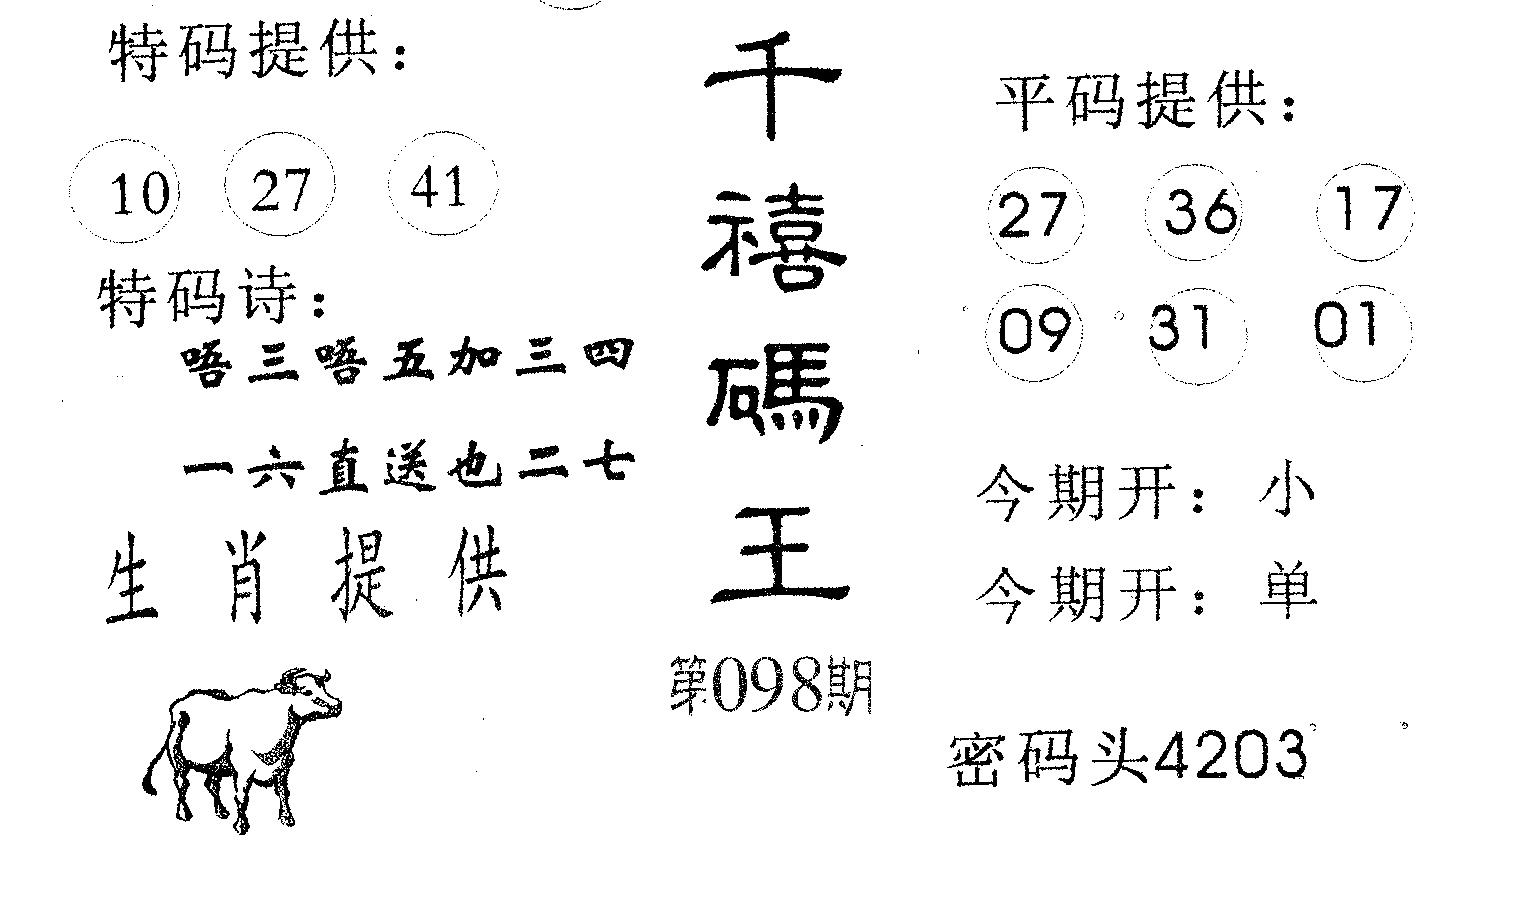 特码提供：
10 27 41
特码诗：
唔三唔五加三四
一六直送也二七
生肖提供
千禧碼王
第098期
平码提供：
27 36 17
09 31 01
今期开：小
今期开：单
密码头4203